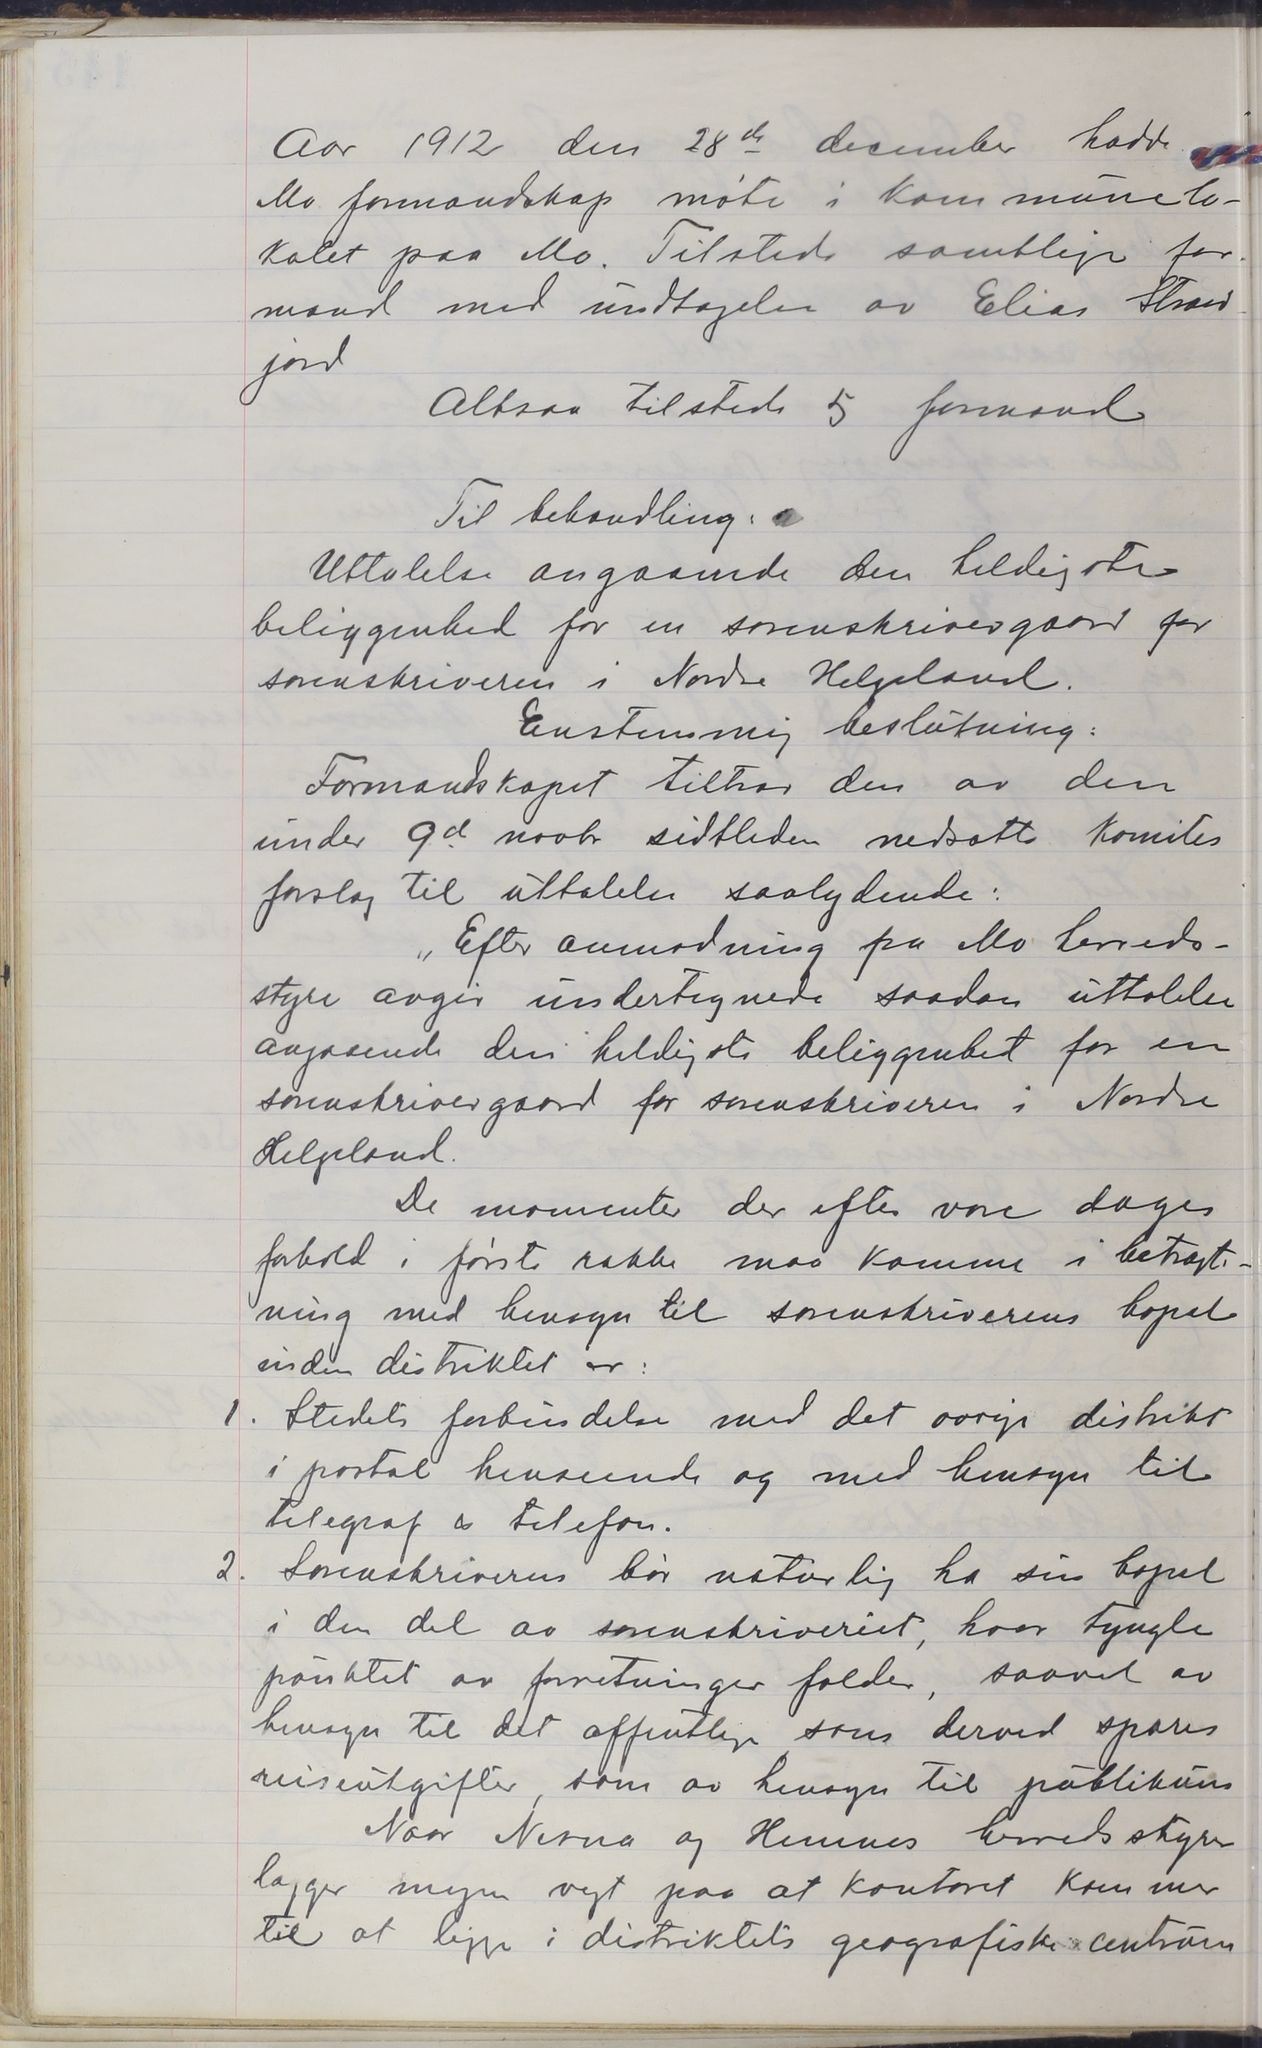 Aar 1912 den 28de december hadde
Mo formandskap møte i kommunelo-
kalet paa Mo. Tilstede samtlige for-
mænd med undtagelse av Elias Strand
jord
Altsaa tilstede 5 formænd
Til behandling:
Uttalelse angaaende den heldigste
beliggenhed for en sorenskrivergaard for
sorenskriveren i Nordre Helgeland.
Enstemmig beslutning:
Formandskapet tiltrær den av den
under 9d novbr sidstleden nedsatte komites
forslag til uttalelse saalydende:
„Efter anmodning fra Mo herreds-
styre avgir undertegnede saadan uttalelse
angaaende den heldigste beliggenhet for en
sorenskrivergaard for sorenskriveren i Nordre
Helgeland.
De momenter der efter vore dages
forhold i første række maa komme i betragt-
ning med hensyn til sorenskriverens bopæl
inden distriktet er:
1. Stedets forbindelse med det øvrige distrikt
i postal henseende og med hensyn til
telegraf & telefon.
2. Sorenskriveren bør naturlig ha sin bopæl
i den del av sorenskriveriet, hvor tyngde
punktet av forretninger falder, saavel av
hensyn til det offentlige som derved spares
reiseutgifter, som av hensyn til publikum
Naar Nesna og Hemnes herredsstyrer
lægger megen vegt paa at kontoret kommer
til at ligge i distriktets geografiske centrum